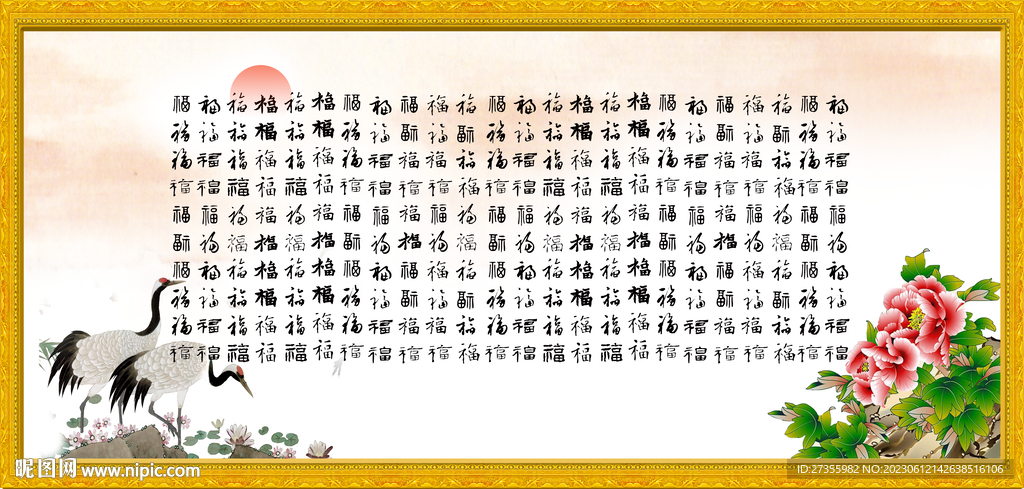 福福福福福福福福福福福福福福福福福福福福福福福福
福福福福福福福福福福福福福福福福福福福福福福福福
福福福福福福福福福福福福福福福福福福福福福福福福
福福福福福福福福福福福福福福福福福福福福福福福福
福福福福福福福福福福福福福福福福福福福福福福福福
福福福福福福福福福福福福福福福福福福福福福福福福
福福福福福福福福福福福福福福福福福福福福福福福福
福福福福福福福福福福福福福福福福福福福福福福福福
福福福福福福福福福福福福福福福福福福福福福福福福
福福福福福福福福福福福福福福福福福福福福福福福福
昵图网 www.nipic.com
ID:27355982 NO:20230612142638516106